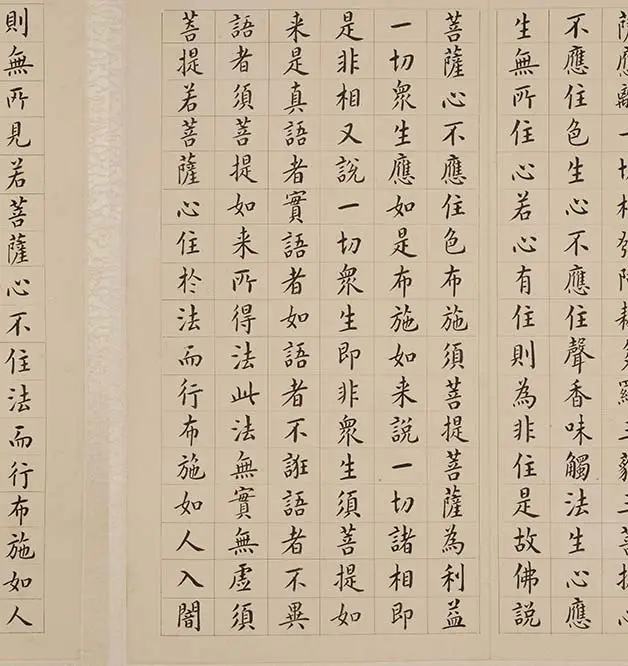 薩應離一切相發阿耨多羅三藐三菩提心
不應住色生心不應住聲香味觸法生心應
生無所住心若心有住則為非住是故佛說
菩薩心不應住色布施須菩提菩薩為利益
一切衆生應如是布施如来說一切諸相即
是非相又說一切衆生即非衆生須菩提如
来是真語者實語者如語者不誑語者不異
語者須菩提如来所得法此法無實無虛須
菩提若菩薩心住於法而行布施如人入闇
則無所見若菩薩心不住法而行布施如人